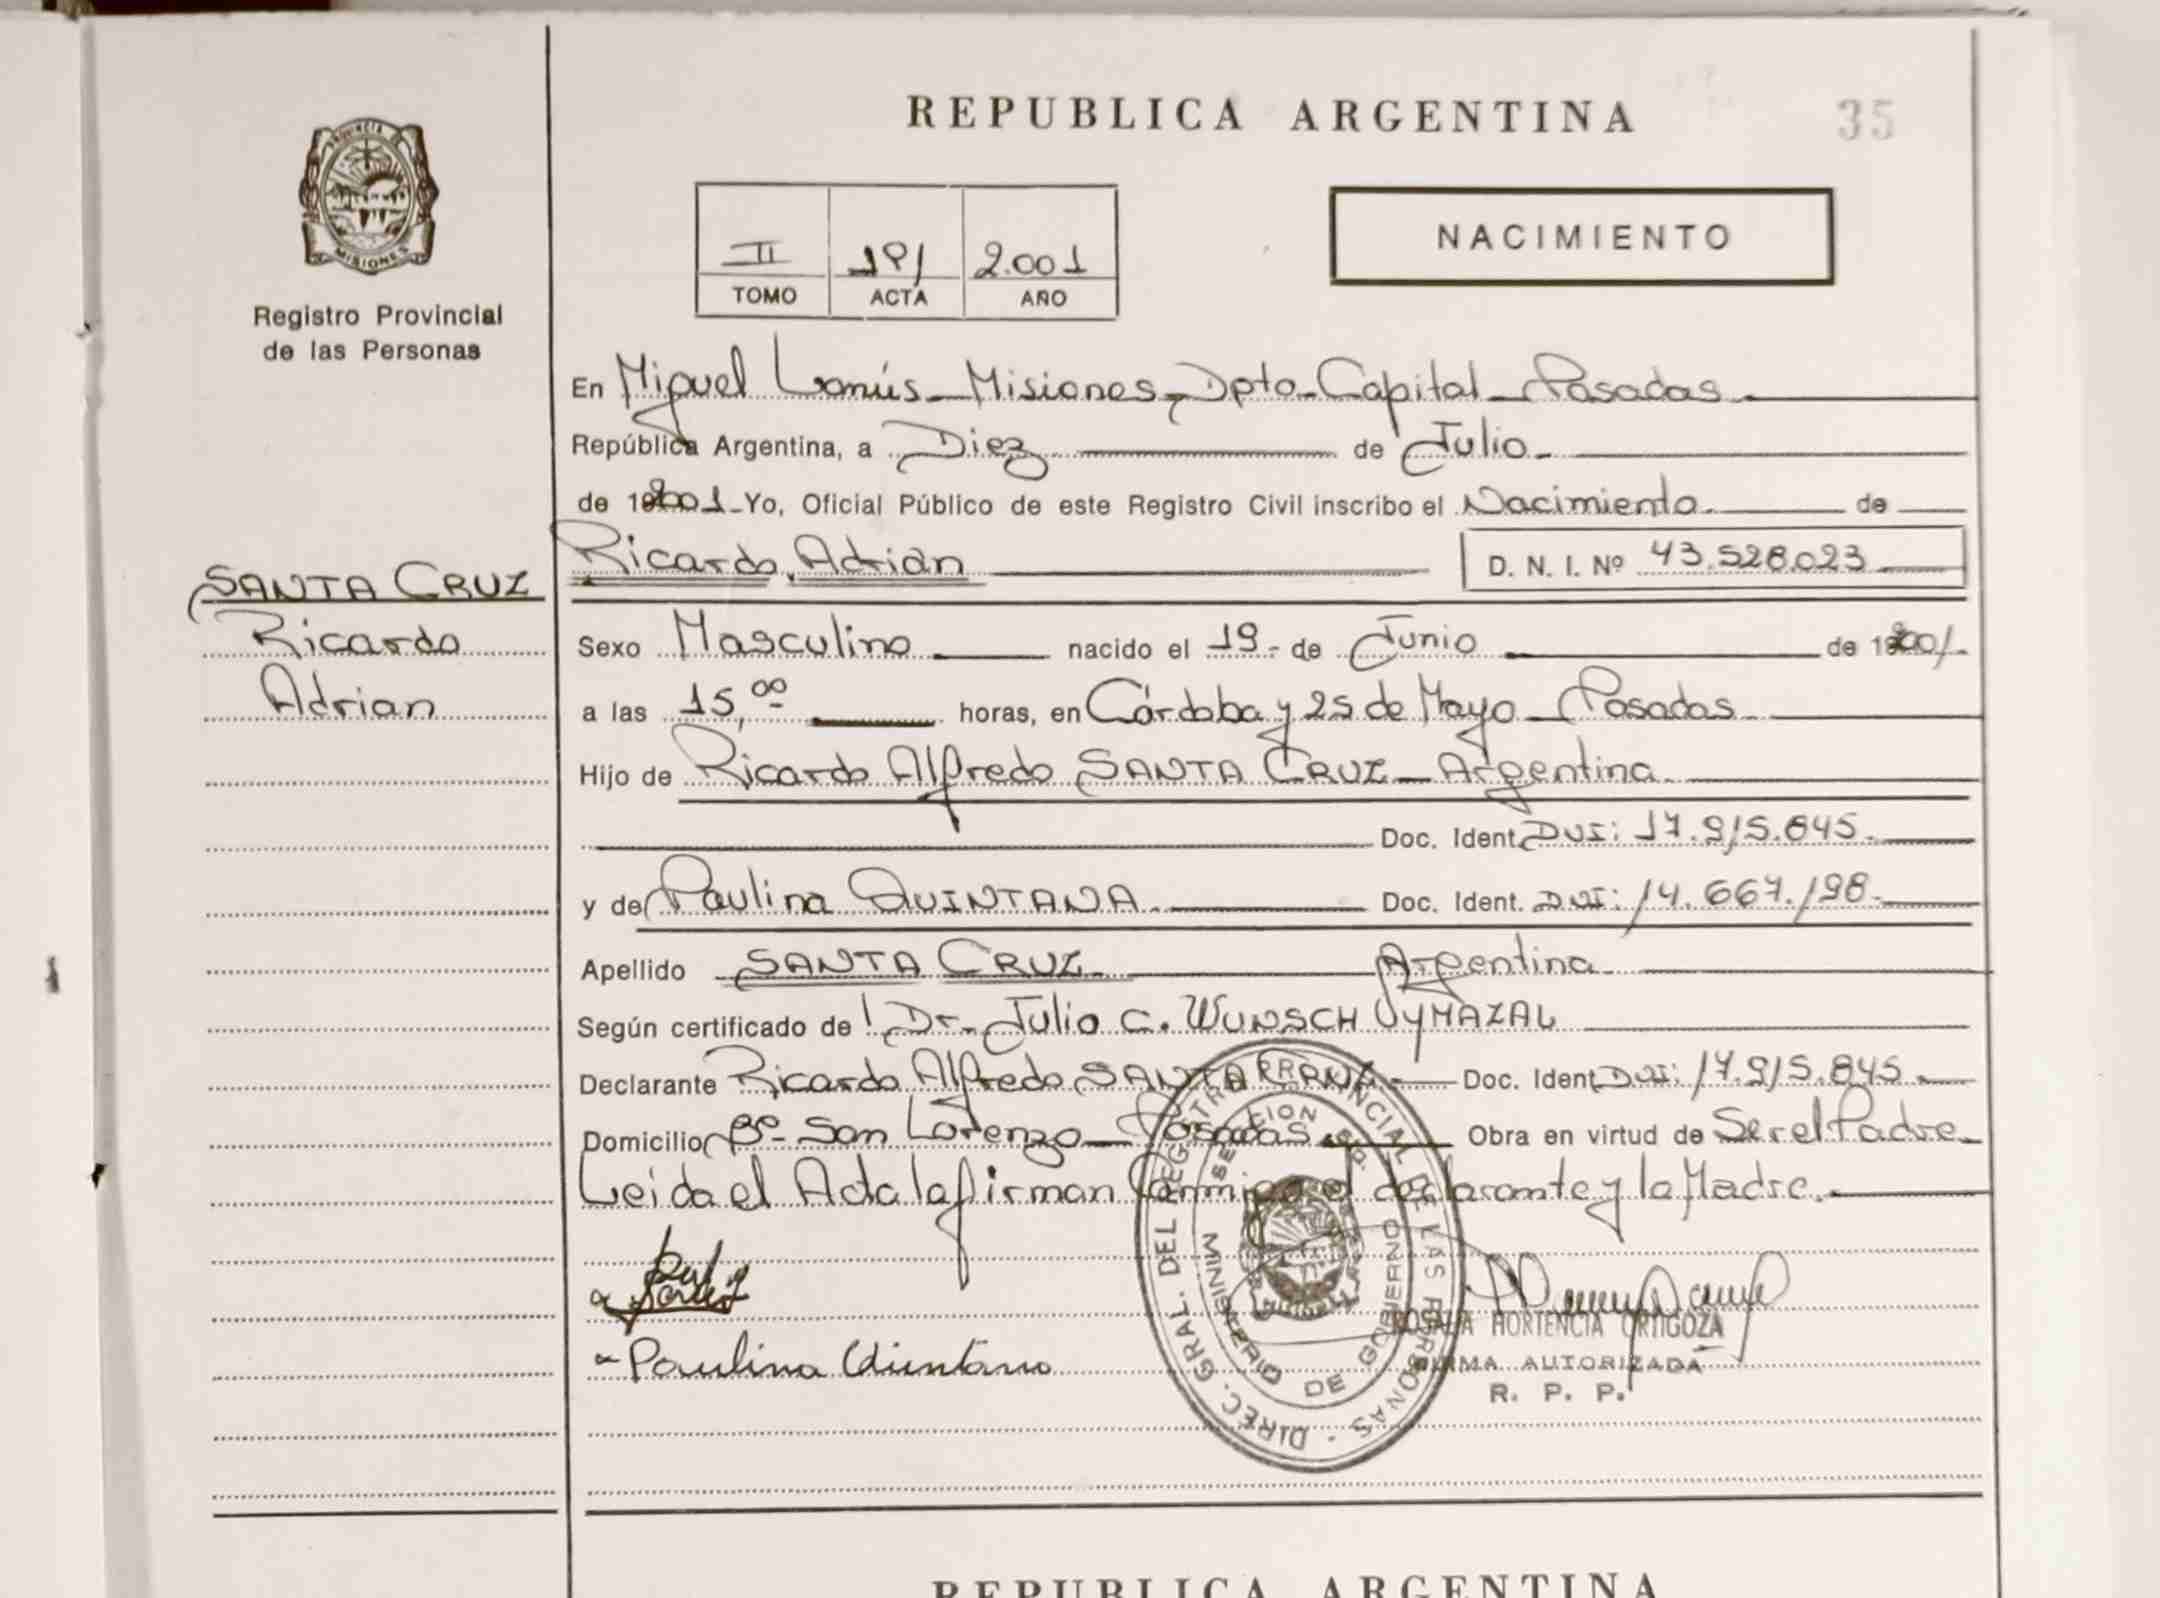 REPUBLICA ARGENTINA
35
PROVINCIA DE
MISIONES
Registro Provincial
de las Personas
II 191 2.001
TOMO ACTA AÑO
NACIMIENTO
En Miguel Lanús - Misiones, Dpto - Capital - Posadas
República Argentina, a Diez de Julio
de 2001 - Yo, Oficial Público de este Registro Civil inscribo el Nacimiento de
Ricardo Adrian D. N. I. Nº 43.528.023
SANTA CRUZ
Ricardo
Adrian
Sexo Masculino nacido el 19 - de Junio de 2001
a las 15,00 horas, en Córdoba y 25 de Mayo - Posadas
Hijo de Ricardo Alfredo SANTA CRUZ - Argentina
Doc. Ident. DNI: 17.915.845
y de Paulina QUINTANA Doc. Ident. DNI: 14.667.198
Apellido SANTA CRUZ Argentina
Según certificado de Dr. Julio C. WUNSCH
Declarante Ricardo Alfredo SANTA CRUZ Doc. Ident. DNI: 17.915.845
Domicilio Bº San Lorenzo - Posadas Obra en virtud de Ser el Padre
Leida el Acta la firman Conmigo el declarante y la Madre.
Paulina Quintana
DIREC. GRAL. DEL REGISTRO PROVINCIAL DE LAS PERSONAS
MINISTERIO DE GOBIERNO
ROSALIA HORTENCIA ORTIGOZA
FIRMA AUTORIZADA
R. P. P.
REPUBLICA ARGENTINA